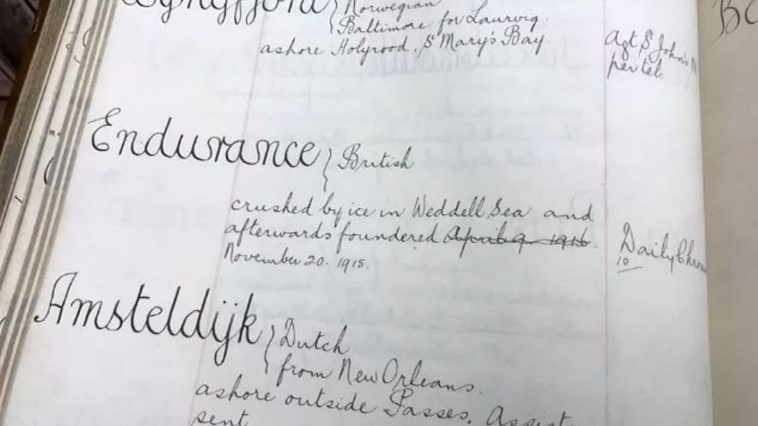 Norwegian
Baltimore for Laurvig.
ashore Holyrood, St Mary's Bay.
Agt St John's
per tel.
Endurance } British
crushed by ice in Weddell Sea and
afterwards foundered April 9 1916.
November 20. 1915.
Daily Chron
10
Amsteldijk } Dutch
from New Orleans.
ashore outside Passes. Assist
sent